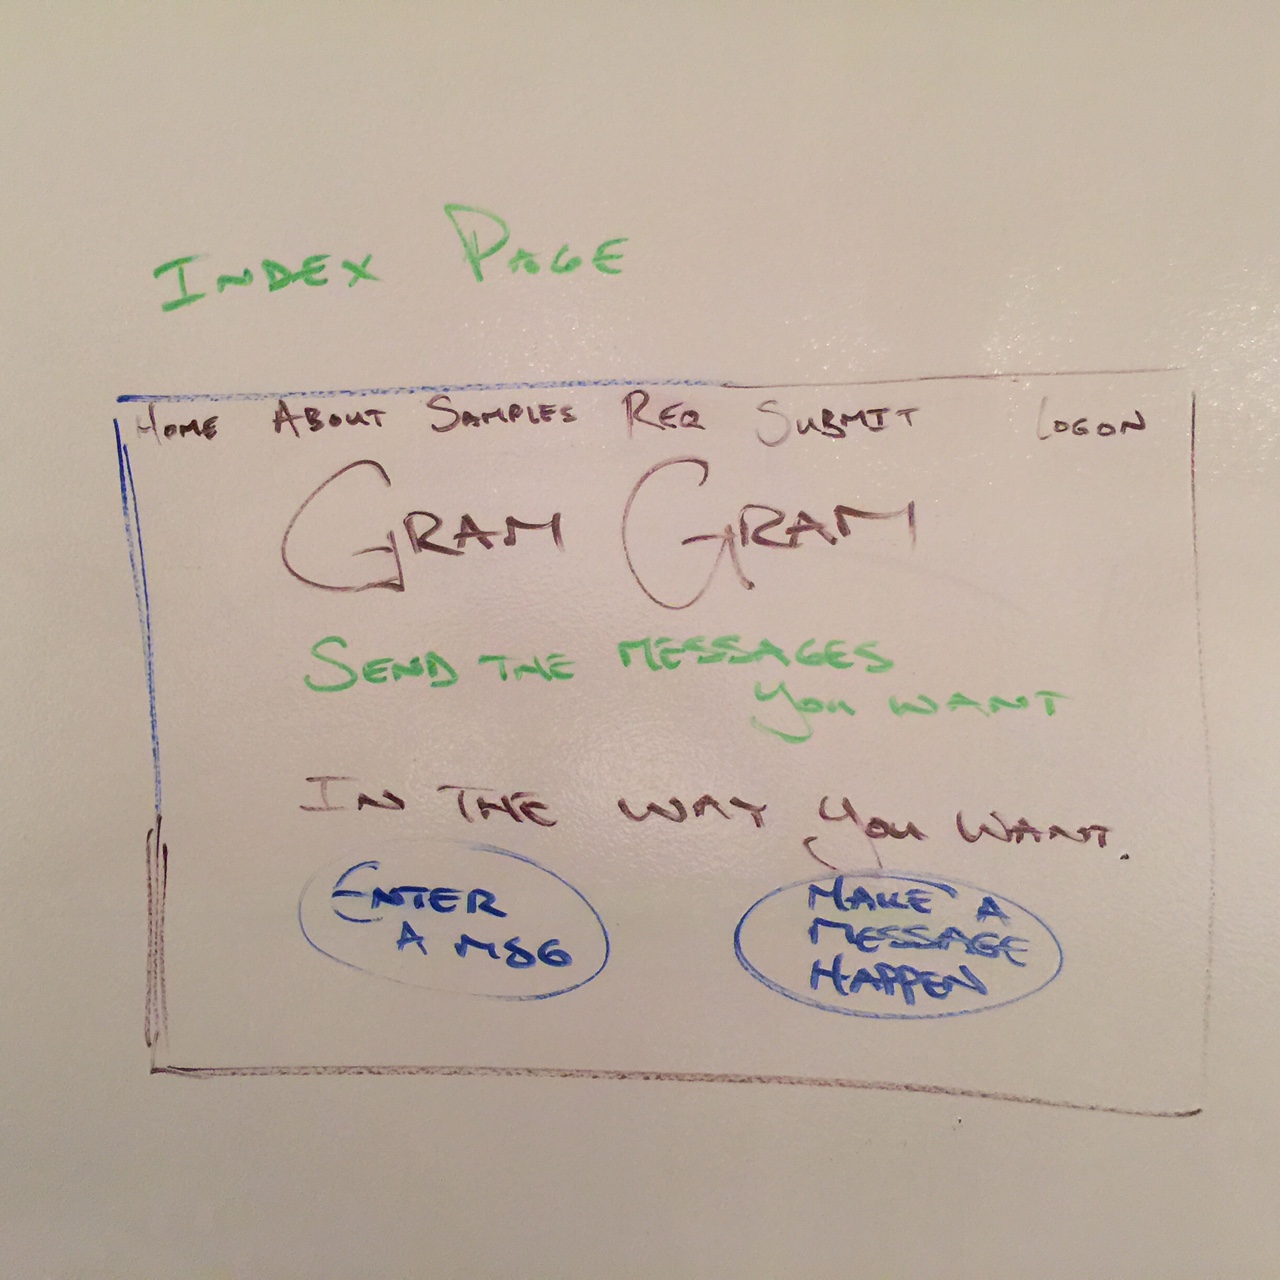 INDEX PAGE
HOME ABOUT SAMPLES REQ SUBMIT LOGON
GRAM GRAM
SEND THE MESSAGES
YOU WANT
IN THE WAY YOU WANT.
ENTER
A MSG
MAKE A
MESSAGE
HAPPEN